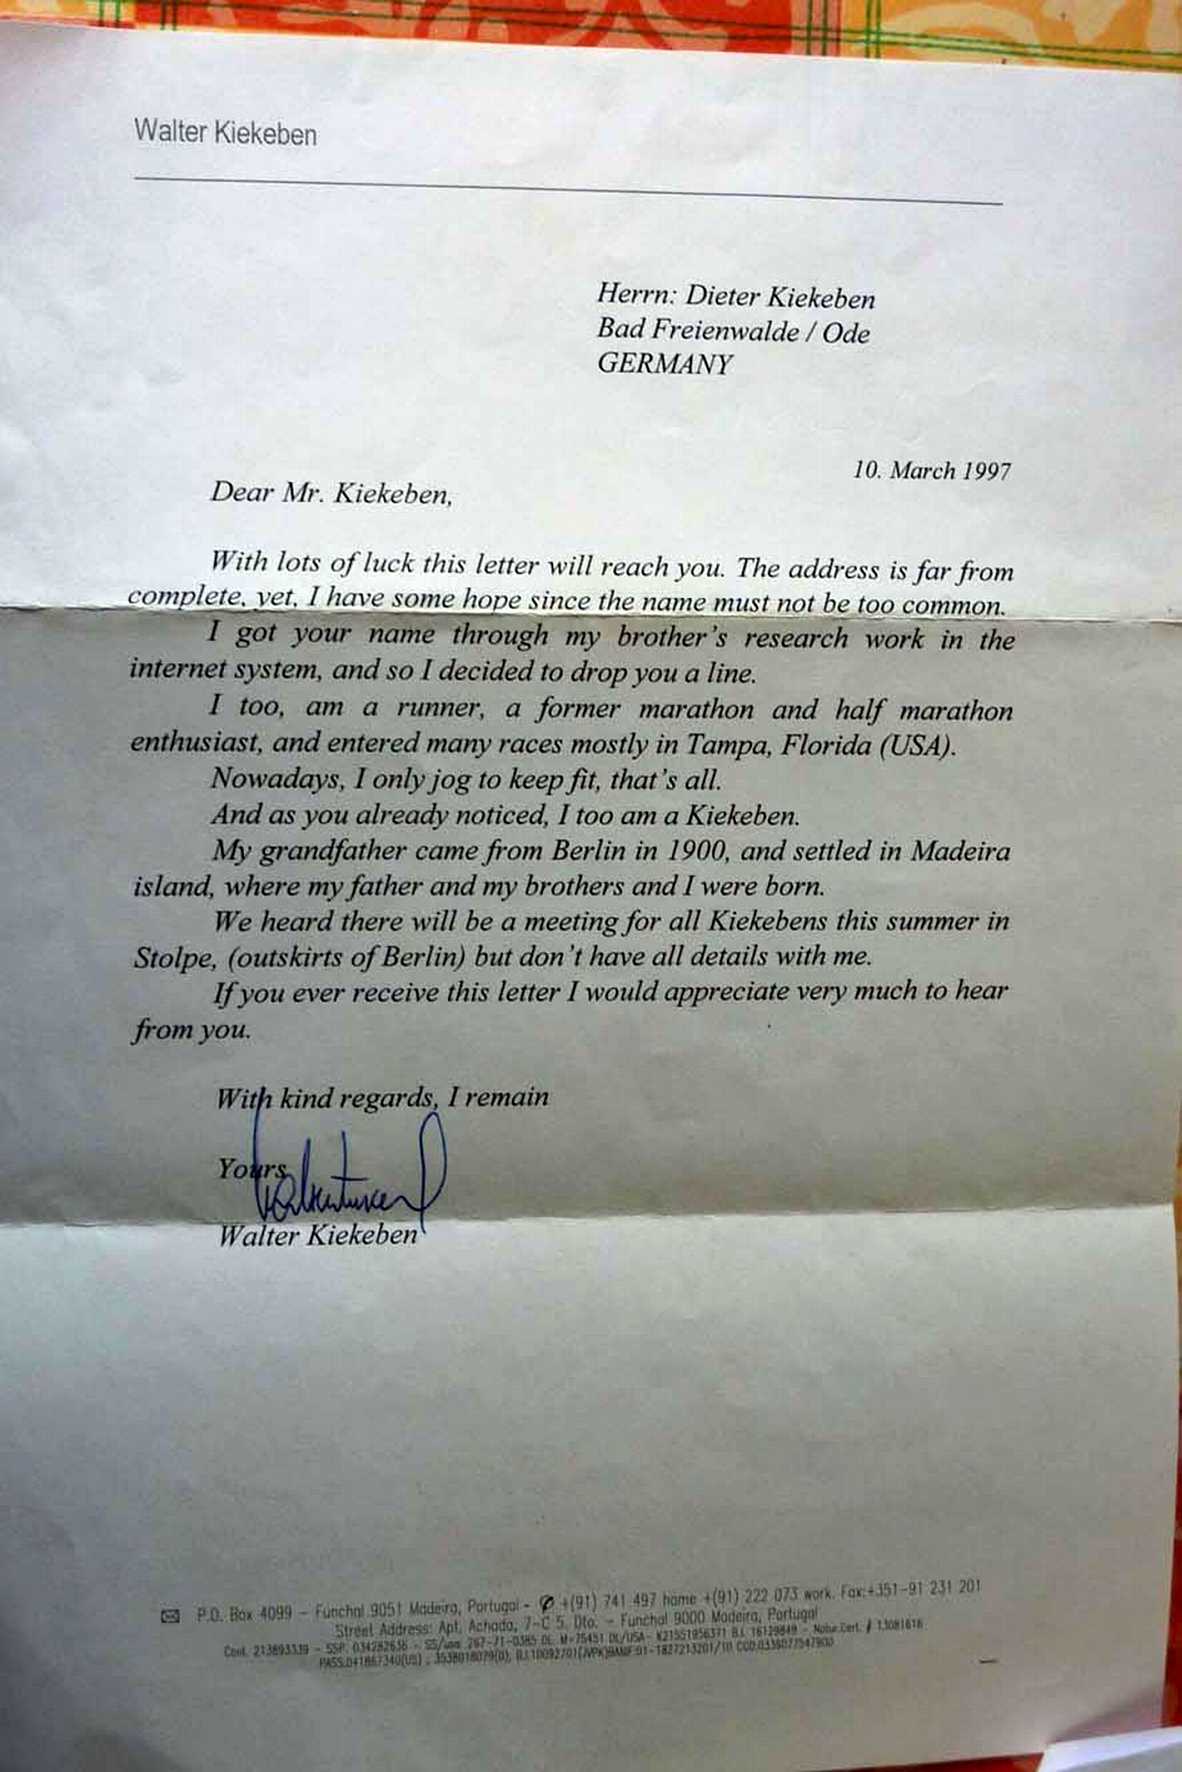 Walter Kiekeben
Herrn: Dieter Kiekeben
Bad Freienwalde / Ode
GERMANY
10. March 1997
Dear Mr. Kiekeben,
With lots of luck this letter will reach you. The address is far from
complete, yet, I have some hope since the name must not be too common.
I got your name through my brother's research work in the
internet system, and so I decided to drop you a line.
I too, am a runner, a former marathon and half marathon
enthusiast, and entered many races mostly in Tampa, Florida (USA).
Nowadays, I only jog to keep fit, that's all.
And as you already noticed, I too am a Kiekeben.
My grandfather came from Berlin in 1900, and settled in Madeira
island, where my father and my brothers and I were born.
We heard there will be a meeting for all Kiekebens this summer in
Stolpe, (outskirts of Berlin) but don't have all details with me.
If you ever receive this letter I would appreciate very much to hear
from you.
With kind regards, I remain
Yours
Walter Kiekeben
P.O. Box 4099 – Funchal 9051 Madeira, Portugal - +(91) 741 497 home +(91) 222 073 work. Fax:+351-91 231 201
Street Address: Apt. Achada, 7-C 5. Dto. - Funchal 9000 Madeira, Portugal